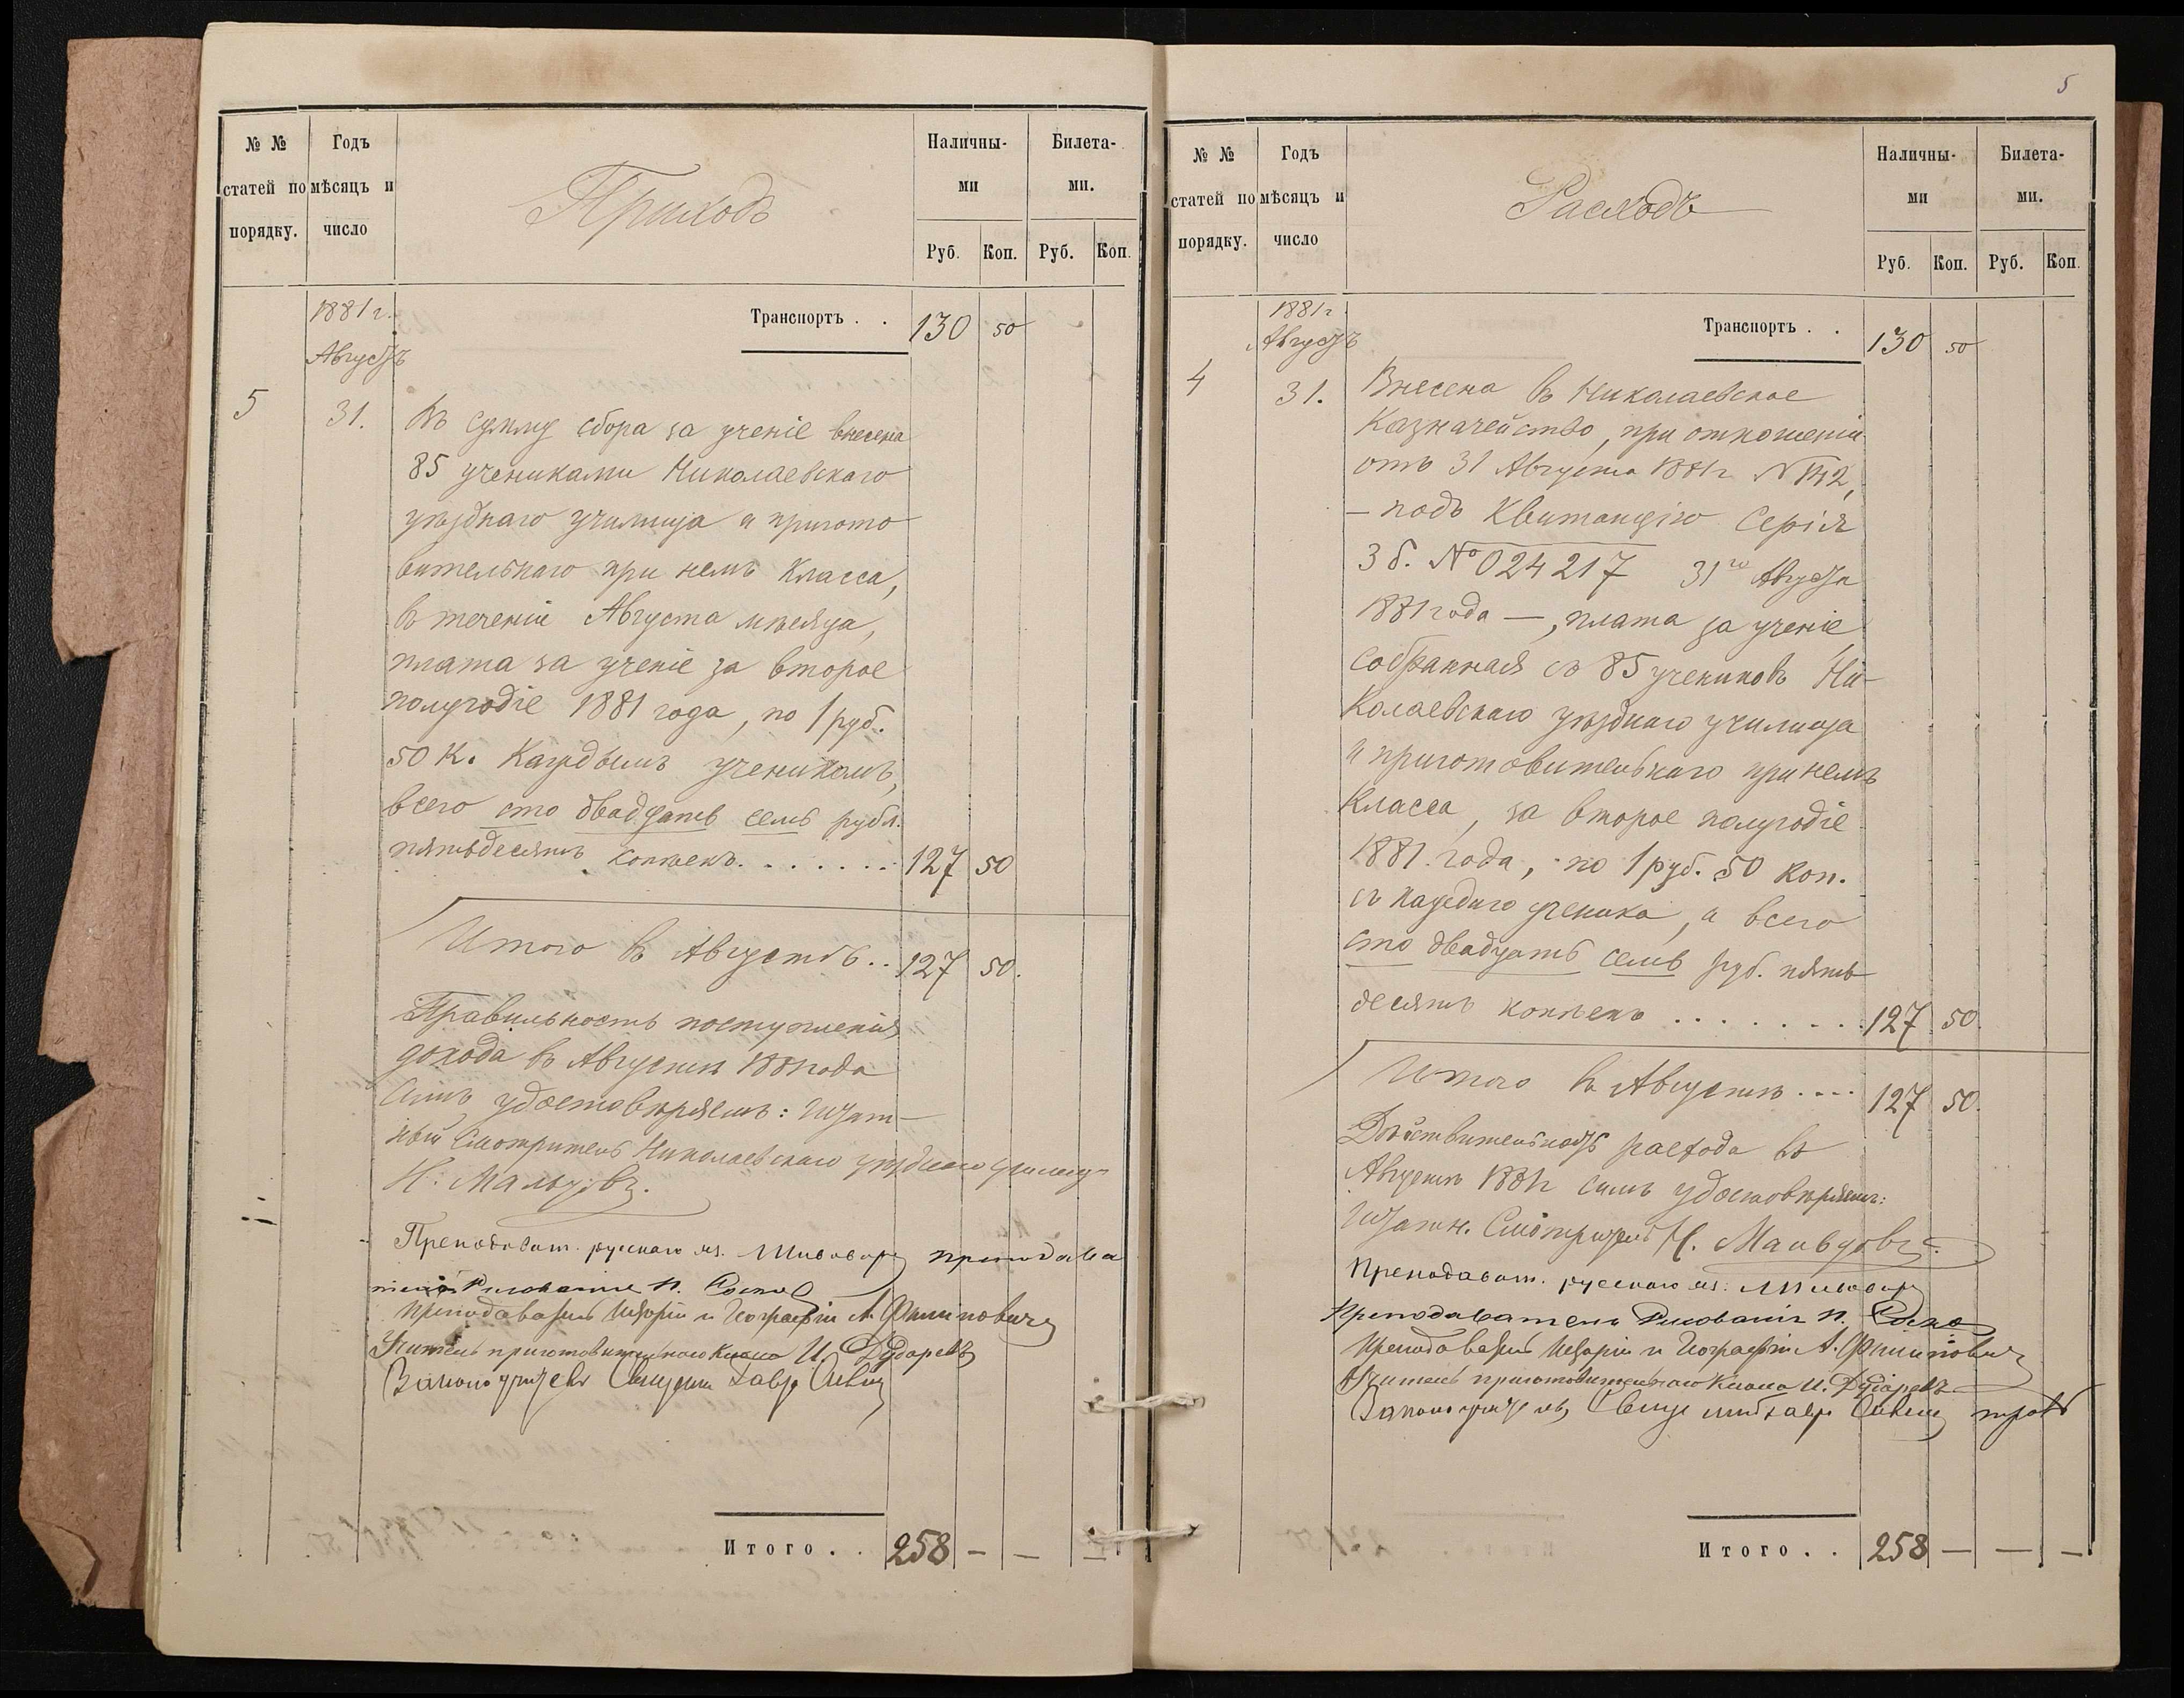 № №
статей по
порядку.
Годъ
мѣсяцъ и
число
Приходъ
Наличны-
ми
Билета-
ми.
Руб. Коп. Руб. Коп.
1881 г.
Августъ
Транспортъ . . 130 50
5 31. Въ сумму сбора за ученіе внесена
85 учениками Николаевскаго
уѣзднаго училища и пригото
вительнаго при немъ класса,
въ теченіи Августа мѣсяца,
плата за ученіе за второе
полугодіе 1881 года, по 1 руб.
50 к. каждымъ ученикомъ,
всего сто двадцать семь рубл.
пятьдесятъ копѣекъ. . . . . . . 127 50
Итого въ Августѣ. . 127 50.
Правильность поступленія
дохода въ Августѣ 1881 года
симъ удостовѣряемъ: Штат-
ный Смотритель Николаевскаго уѣзднаго училища
Н. Мальцовъ.
Преподават. русскаго яз. преподава
Рисованія
Преподаватель Исторіи и Географіи А. Филиповичъ
Учитель приготовительнаго класса И. Дударевъ
Законоучитель Священникъ
Итого . . 258 — — —
5
№ №
статей по
порядку.
Годъ
мѣсяцъ и
число
Расходъ
Наличны-
ми
Билета-
ми.
Руб. Коп. Руб. Коп.
1881 г.
Августъ
Транспортъ . . 130 50
4 31. Внесена въ Николаевское
Казначейство, при отношеніи
отъ 31 Августа 1881 г. №
— подъ квитанцію Серія
3 б. № 024217 31го Августа
1881 года —, плата за ученіе
собранная съ 85 учениковъ Ни-
колаевскаго уѣзднаго училища
и приготовительнаго при немъ
класса, за второе полугодіе
1881 года, по 1 руб. 50 коп.
съ каждаго ученика, а всего
сто двадцать семь руб. пять
десятъ копѣекъ . . . . . . . . 127 50.
Итого въ Августѣ . . . . 127 50.
Дѣйствительность расхода въ
Августѣ 1881 г. симъ удостовѣряемъ:
Штатн. Смотритель Н. Мальцовъ.
Преподават. русскаго яз.
Преподаватель Рисованія
Преподаватель Исторіи и Географіи А. Филиповичъ
Учитель приготовительнаго класса И. Дударевъ
Законоучитель, Священникъ
Итого . . 258 — — —